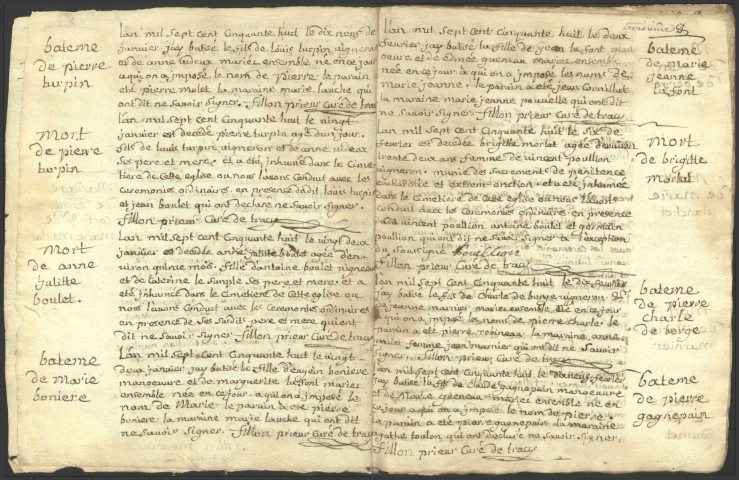 bateme
de pierre
turpin
lan mil sept cent Cinquante huit le dix neuf de
janvier jay batisé le fils de Louis turpin vigneron
et de anne videux mariez ensemble né en ce jour
a qui on a jmposé le nom de Pierre. le parain a
eté pierre molet la maraine marie lauche qui
ont dit ne Savoir Signer. fillon prieur Curé de tracy
mort
de pierre
turpin
lan mil Sept cent Cinquante huit le vingt
janvier est decedé pierre turpin agé dun jour.
fils de louis turpin vigneron et de anne videux
Ses pere et mere, et a eté jnhumé dans le Cime
tiere de Cette eglise ou nous lavons Conduit avec les
ceremonies ordinaires. en presence dudit louis turpin
et jean boulet qui ont declaré ne Savoir Signer.
fillon prieur Curé de tracy
mort
de anne
julitte
boulet.
lan mil Sept cent Cinquante huit le vingt deux
janvier est decedée anne julitte boulet agée den
viron quinze mois. fille dantoine boulet vigneron
et de Caterine le Simple Ses pere et mere. et a
eté jnhumée dans le Cimetiere de Cette eglise ou
nous lavons Conduit avec les ceremonies ordinaires
en presence de Ses Susdits pere et mere qui ont
dit ne Savoir Signer. fillon prieur Curé de tracy
bateme
de Marie
boniere
lan mil Sept cent Cinquante huit le vingt-
deux janvier jay batisé la fille boniere
manoeuvre et de marguerite la font mariez
ensemble née en ce jour. a qui on a jmposé le
nom de Marie. le parain a eté pierre
boniere la maraine marie lauche qui ont dit
ne Savoir Signer. fillon prieur Curé de tracy
lan mil Sept cent Cinquante huit le deux
fevrier jay batisé la fille de jean la font man
oeuvre et de Edmée queneau mariez ensemble
née en ce jour a qui on a jmposé les noms de
marie jeanne. le parain a eté jean Cornillat
la maraine marie jeanne pouvelle qui ont dit
ne Savoir Signer. fillon prieur Curé de tracy
bateme
de marie
jeanne
la font
lan mil Sept cent Cinquante huit le Six de
fevrier est decedée brigitte morlat agée denviron
trente deux ans femme de vincent poullion
vigneron. munie des Sacrements de penitence
eucharistie et extrem-onction. et a eté jnhumée
dans le Cimetiere de Cette eglise ou nous lavons
conduit avec les Ceremonies ordinaires. en presence
de vincent poullion antoine boulet et germain
poullion qui ont dit ne Savoir Signer a lexception
du Soussigné poullion
fillon prieur Curé de tracy
mort
de brigitte
morlat
lan mil Sept cent Cinquante huit le dix fevrier
jay batisé le fils de Charle de berge vigneron et
de jeanne marnier mariez ensemble né en ce jour
a qui on a jmposé les noms de pierre charle. le
parain a eté pierre robineau la maraine anne
milet femme jean marnier qui ont dit ne Savoir
Signer. fillon prieur Curé de tracy
bateme
de pierre
charle
de berge
lan mil Sept cent Cinquante huit le fevrier
jay batisé le fils de Claude gagnepain manoeuvre
et de Marie queneau mariez ensemble né en
ce jour a qui on a jmposé le nom de pierre.
le parain a eté pierre gagnepain la maraine
agathe toulon qui ont declaré ne Savoir Signer.
fillon prieur Curé de tracy
bateme
de pierre
gagnepain